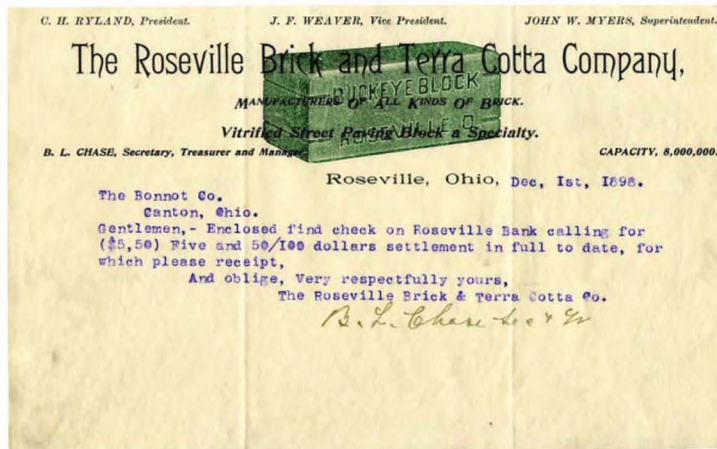 C. H. RYLAND, President. J. F. WEAVER, Vice President. JOHN W. MYERS, Superintendent.
The Roseville Brick and Terra Cotta Company,
BUCKEYE BLOCK
MANUFACTURERS OF ALL KINDS OF BRICK.
Vitrified Street Paving Block a Specialty.
ROSEVILLE, O.
B. L. CHASE, Secretary, Treasurer and Manager. CAPACITY, 8,000,000.
Roseville, Ohio, Dec, 1st, 1898.
The Bonnot Co.
Canton, Ohio.
Gentlemen,- Enclosed find check on Roseville Bank calling for
($5,50) Five and 50/100 dollars settlement in full to date, for
which please receipt,
And oblige, Very respectfully yours,
The Roseville Brick & Terra Cotta Co.
B. L. Chase Sec & Tr